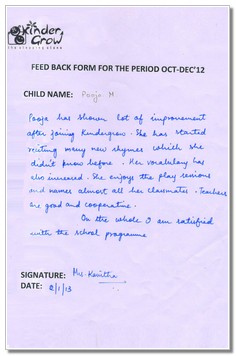 Kinder Grow
the stepping stone
FEED BACK FORM FOR THE PERIOD OCT-DEC'12
CHILD NAME: Pooja M
Pooja has shown lot of improvement
after joining Kindergrow. She has started
reciting many new rhymes which she
didn't know before. Her vocabulary has
also increased. She enjoys the play sessions
and names almost all her classmates. Teachers
are good and cooperative.
On the whole I am satisfied
with the school programme
SIGNATURE: Mrs. Kavitha
DATE: 2/1/13